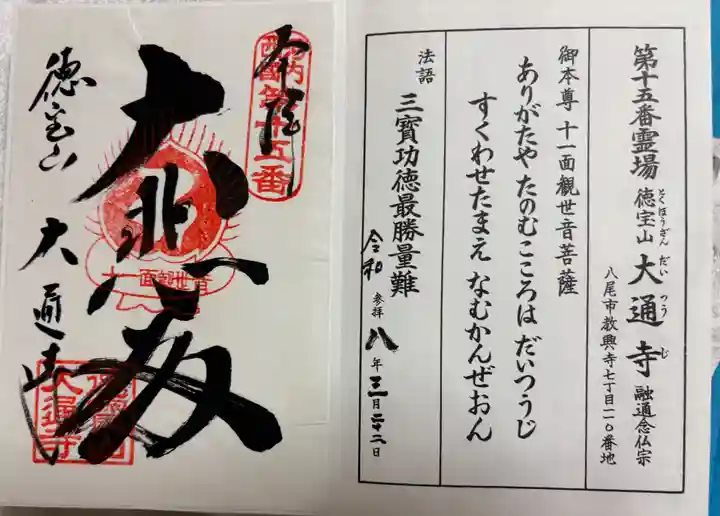 第十五番霊場 徳宝山 大通寺 融通念仏宗
とくほうざん だいつうじ
八尾市教興寺七丁目一一〇番地
御本尊 十一面観世音菩薩
ありがたや たのむこころは だいつうじ
すくわせたまえ なむかんぜおん
法語 三寶功徳最勝量難
令和 参拝 八年三月二十二日
奉拝
河内西國第十五番
大悲殿
十一面観世音
徳宝山 大通寺
大通寺